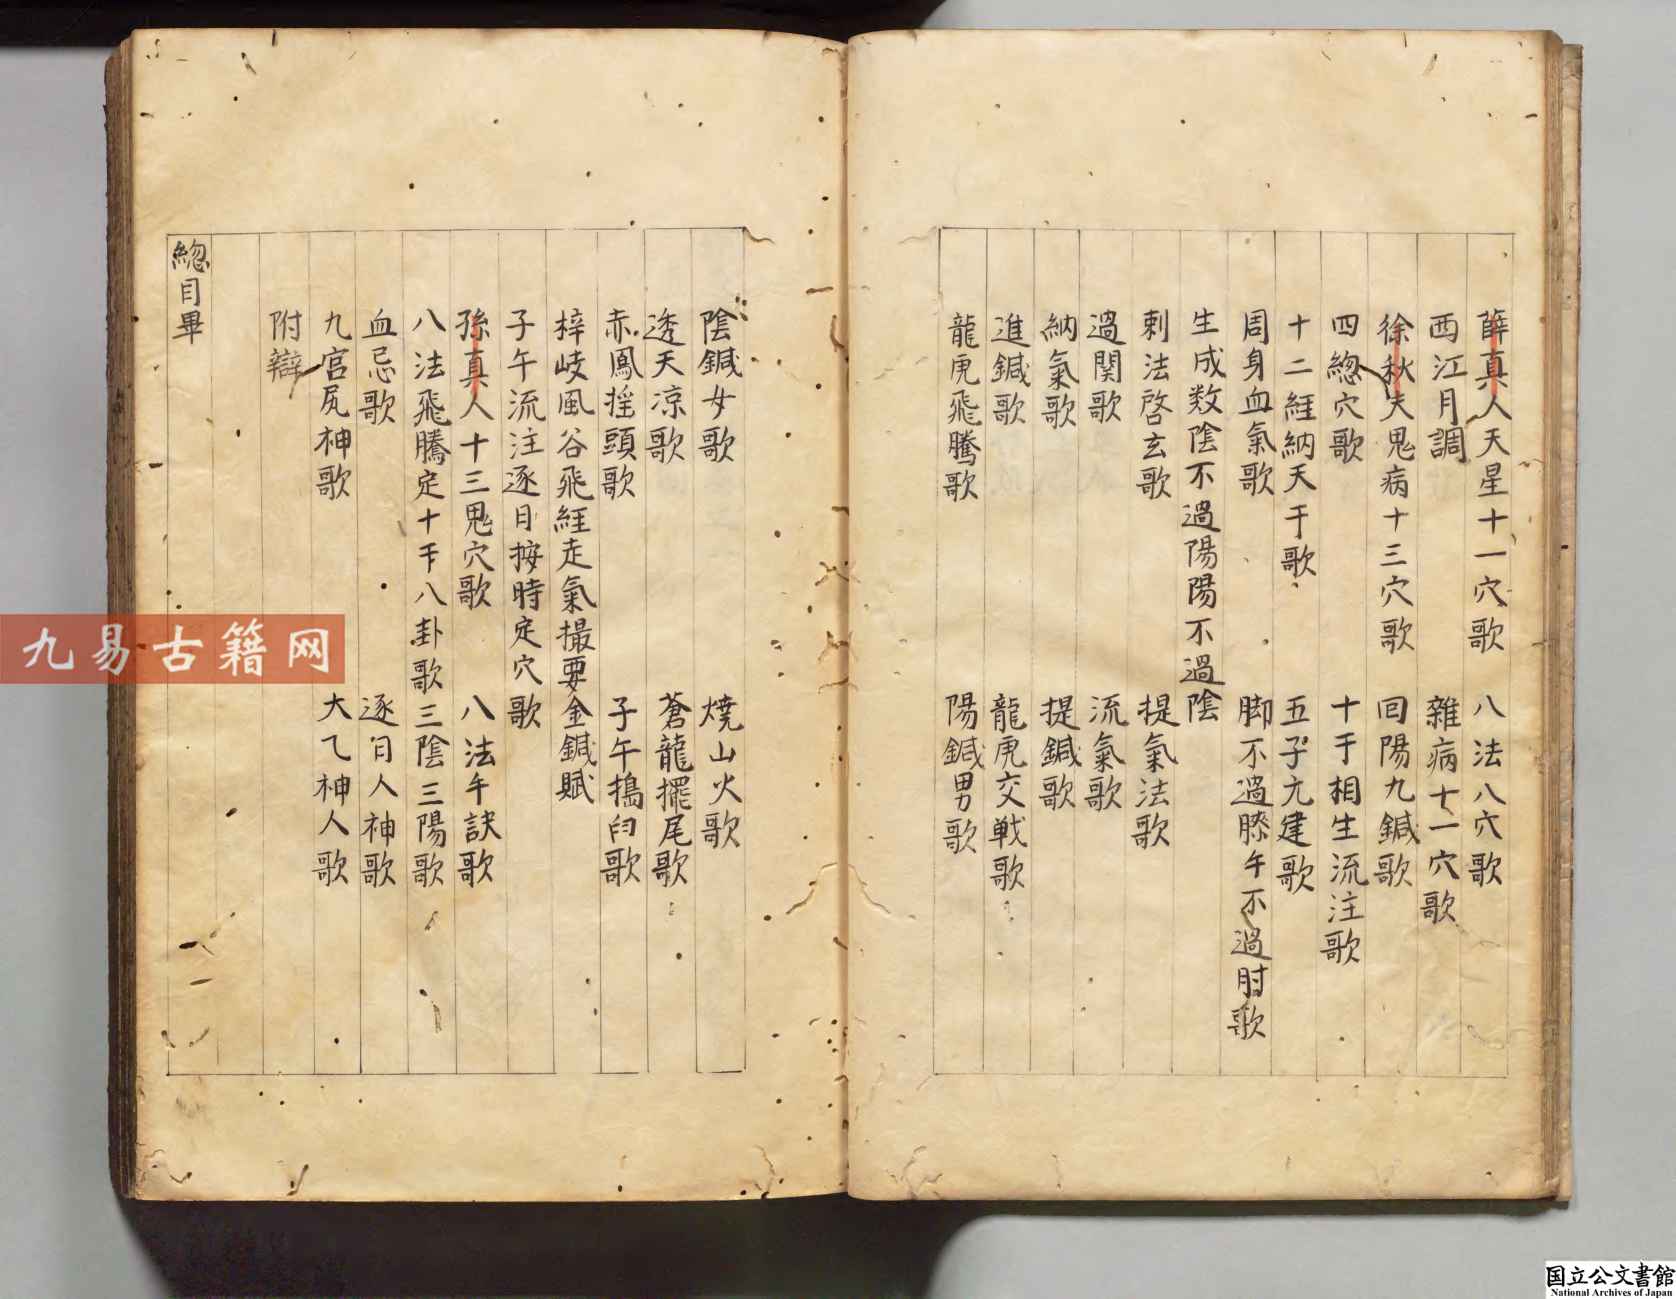 薛真人天星十一穴歌　八法八穴歌
西江月調　雜病十一穴歌
徐秋夫鬼病十三穴歌　回陽九鍼歌
四總穴歌　十干相生流注歌
十二経納天干歌　五子元建歌
周身血氣歌　脚不過膝午不過肘歌
生成数陰不過陽陽不過陰
刺法啓玄歌　提氣法歌
過関歌　流氣歌
納氣歌　提鍼歌
進鍼歌　龍虎交戦歌
龍虎飛騰歌　陽鍼男歌
陰鍼女歌　燒山火歌
透天凉歌　蒼龍擺尾歌
赤鳳揺頭歌　子午搗臼歌
梓岐風谷飛経走氣撮要金鍼賦
子午流注逐日按時定穴歌
孫真人十三鬼穴歌　八法午訣歌
八法飛騰定十干八卦歌　三陰三陽歌
血忌歌　逐日人神歌
九宮尻神歌　大乙神人歌
附辯
總目畢
九易古籍网
国立公文書館
National Archives of Japan